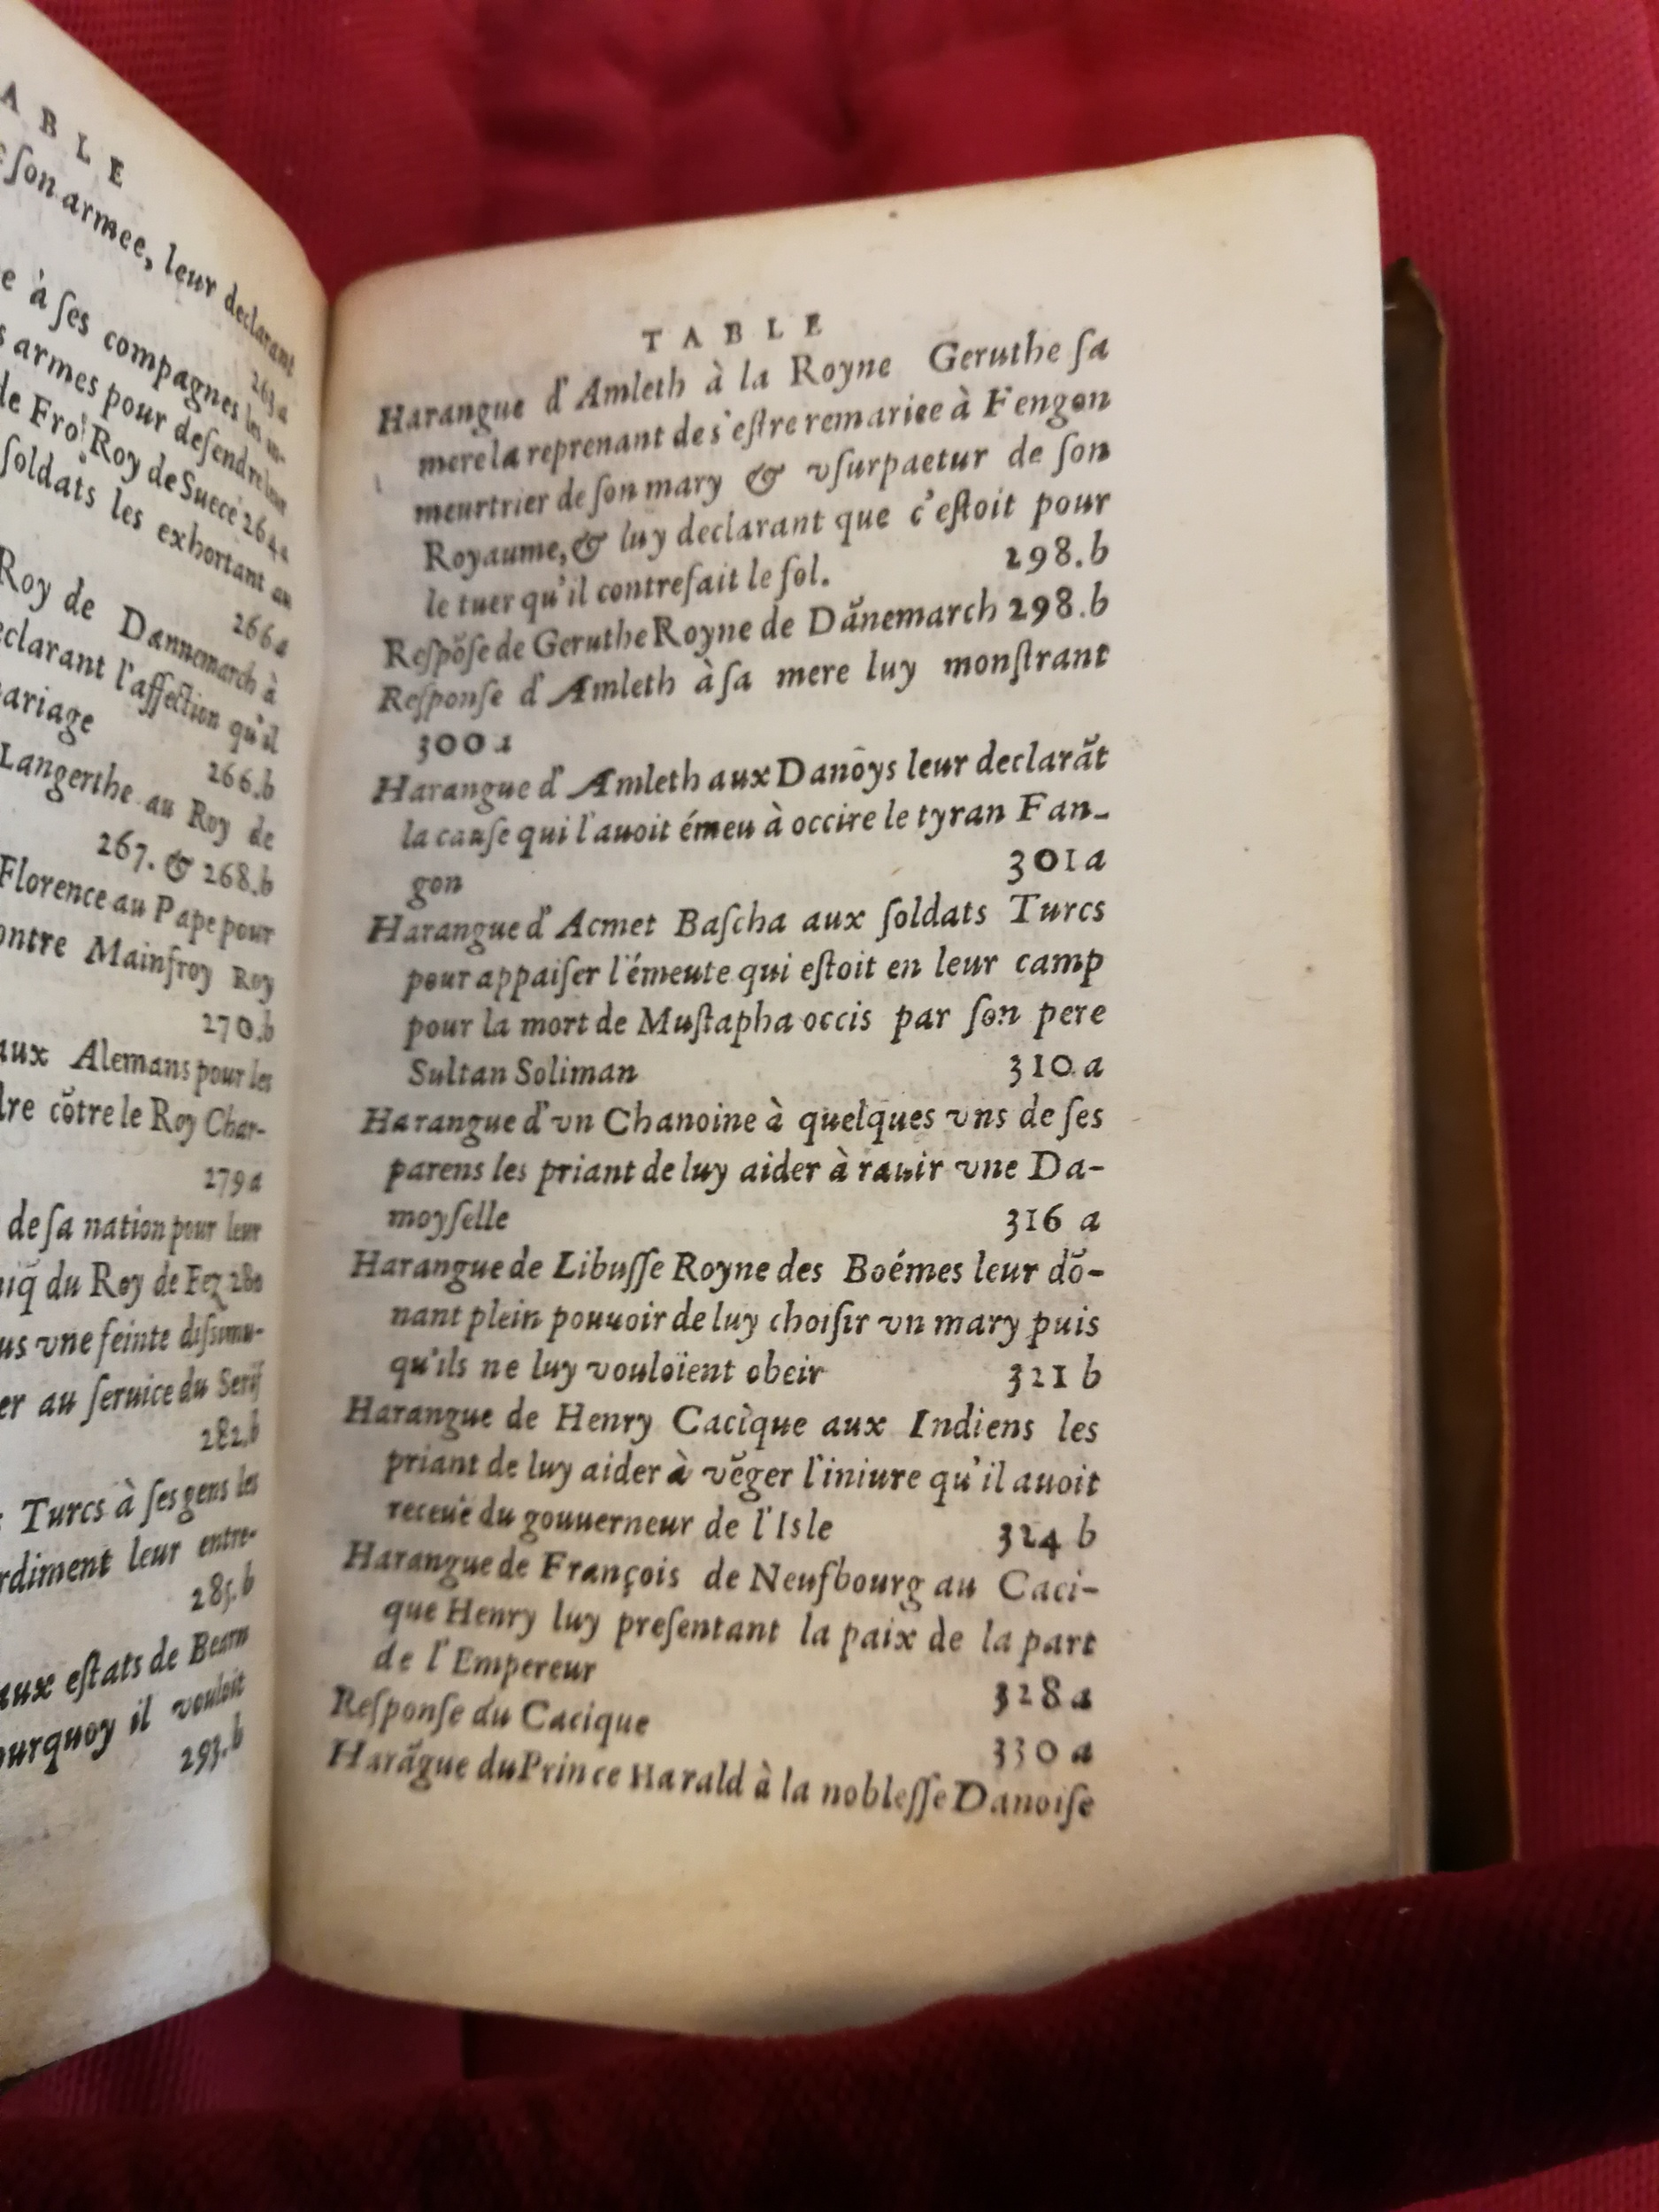 ABLE
son armee, leur declarant
263a
e à ses compagnes les
s armes pour defendre leur
de Fro Roy de Suece 264a
soldats les exhortant au
266a
Roy de Dannemarch à
eclarant l'affection qu'il
ariage
266.b
Langerthe au Roy de
267. & 268.b
Florence au Pape pour
ontre Mainfroy Roy
270.b
aux Alemans pour les
dre cõtre le Roy Char-
279a
de sa nation pour leur
du Roy de Fez 280
us vne feinte dissimu-
er au seruice du Serif
282.b
Turcs à ses gens les
rdiment leur entre-
285.b
aux estats de Bearn
ourquoy il vouloit
293.b
TABLE
Harangue d'Amleth à la Royne Geruthe sa
mere la reprenant de s'estre remariee à Fengon
meurtrier de son mary & vsurpaetur de son
Royaume, & luy declarant que c'estoit pour
le tuer qu'il contrefait le fol. 298.b
Respõse de Geruthe Royne de Dãnemarch 298.b
Response d'Amleth à sa mere luy monstrant
300a
Harangue d'Amleth aux Danoys leur declarãt
la cause qui l'auoit émeu à occire le tyran Fan-
gon 301a
Harangue d'Acmet Bascha aux soldats Turcs
pour appaiser l'émeute qui estoit en leur camp
pour la mort de Mustapha occis par son pere
Sultan Soliman 310.a
Harangue d'vn Chanoine à quelques vns de ses
parens les priant de luy aider à rauir vne Da-
moyselle 316 a
Harangue de Libusse Royne des Boémes leur dõ-
nant plein pouuoir de luy choisir vn mary puis
qu'ils ne luy vouloïent obeir 321 b
Harangue de Henry Cacique aux Indiens les
priant de luy aider à vẽger l'iniure qu'il auoit
receuë du gouuerneur de l'Isle 324 b
Harangue de François de Neufbourg au Caci-
que Henry luy presentant la paix de la part
de l'Empereur 328a
Response du Cacique 330a
Harãgue du Prince Harald à la noblesse Danoise